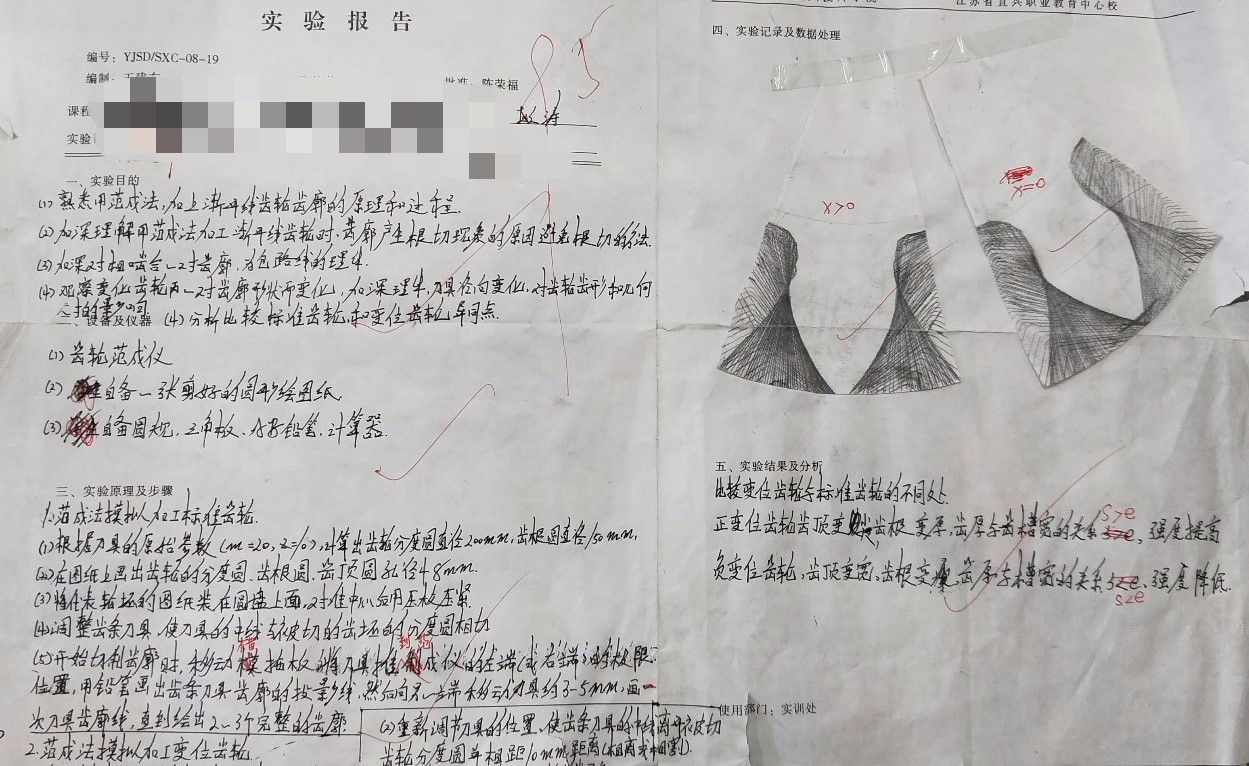 实验报告
编号：YJSD/SXC-08-19
编制：
批准：陈荣福
课程
实验
85
一、实验目的
(1) 熟悉用范成法，加工渐开线齿轮齿廓的原理和过程.
(2) 加深理解用范成法加工渐开线齿轮时，齿廓产生根切现象的原因避免根切的方法.
(3) 加深对相啮合一对齿廓，
(4) 观察变化齿轮 一对齿廓形状而变化，加深理解，刀具径向变化，对齿轮齿形和几何
二、设备及仪器 (4) 分析比较标准齿轮，和变位齿轮异同点.
(1) 齿轮范成仪
(2) 自备一张剪好的圆形绘图纸.
(3) 自备圆规，三角板、铅笔，计算器.
三、实验原理及步骤
1.范成法模拟加工标准齿轮.
(1)根据刀具的原始参数 (m=20, x=0)，计算出齿轮分度圆直径200mm，齿根圆直径150mm，
(2)在图纸上画出齿轮的分度圆、齿根圆、齿顶圆孔径48mm.
(3)将代表轮坯的图纸装在圆盘上面，对准中心后用压板压紧
(4)调整齿条刀具，使刀具的中线与被切的齿坯的分度圆相切
(5)开始切制齿廓时，移动 拖板将刀具推到范成仪的左端(或右端)的极限
位置，用铅笔画出齿条刀具齿廓的投影线，然后向另一端移动刀具约3-5mm，画一
次刀具齿廓线，直到绘出2~3个完整的齿廓.
2.范成法模拟加工变位齿轮.
(2)重新调节刀具的位置，使齿条刀具的中线离开被切
齿轮分度圆并相距10mm距离(相离或相割).
江苏省宜兴职业教育中心校
四、实验记录及数据处理
x>0
x=0
五、实验结果及分析
比较变位齿轮与标准齿轮的不同处.
正变位齿轮齿顶变 齿根变厚，齿厚与齿槽宽的关系 s>e，强度提高
负变位齿轮，齿顶变宽，齿根变 齿厚与槽宽的关系 s<e，强度降低.
使用部门：实训处